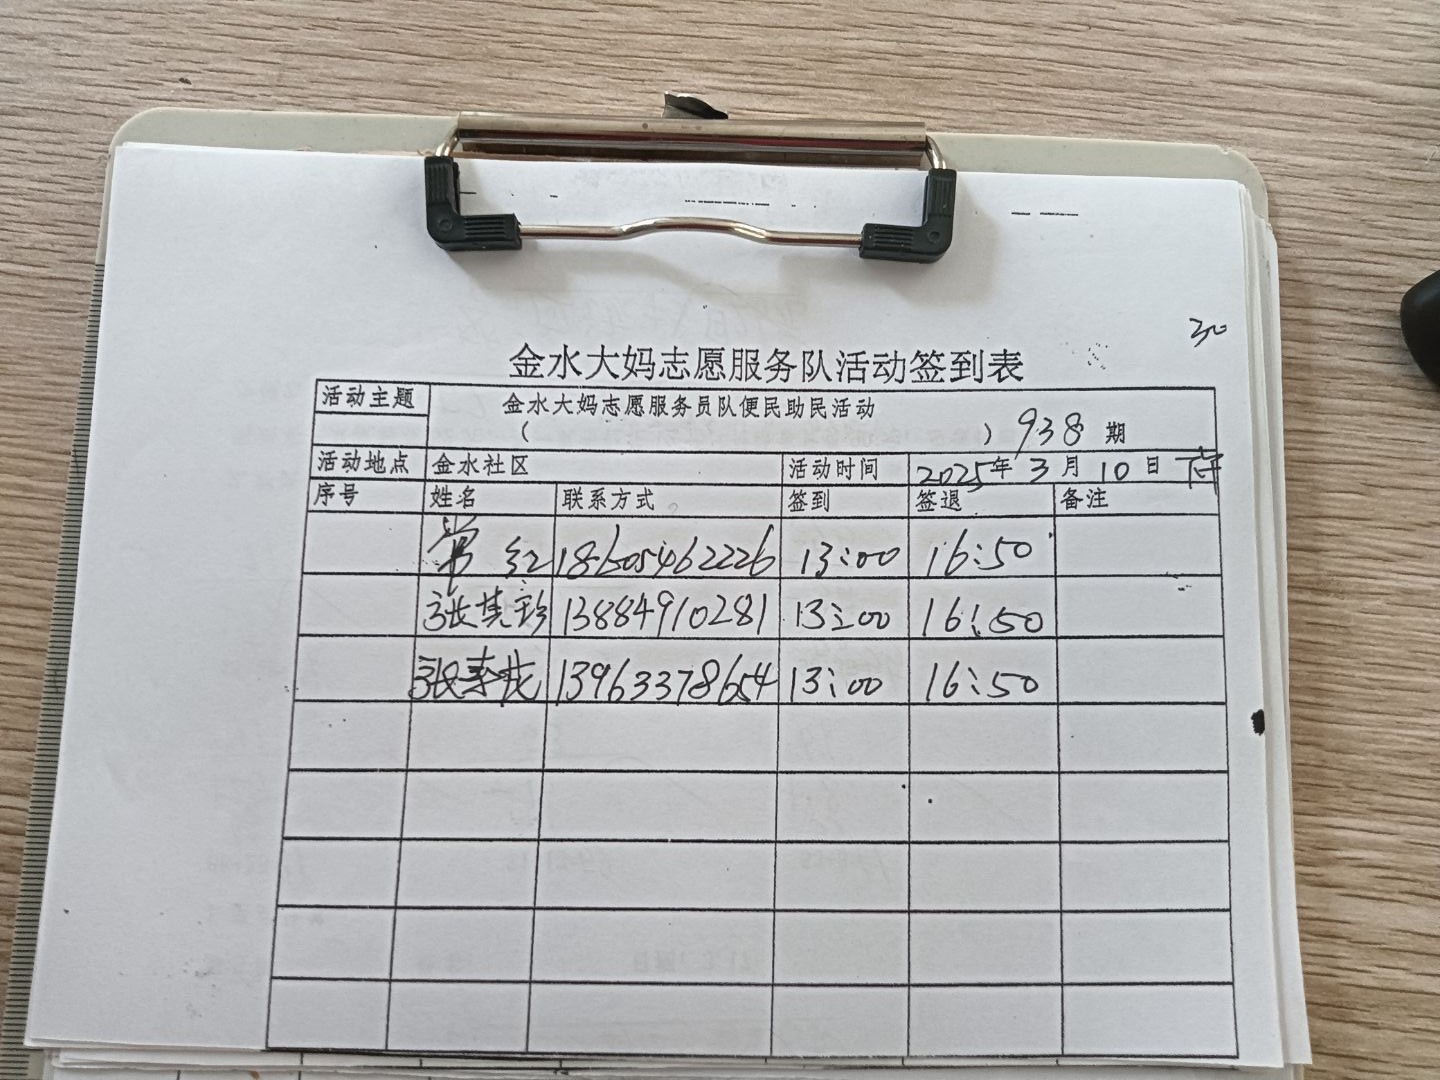 30
金水大妈志愿服务队活动签到表
活动主题 金水大妈志愿服务员队便民助民活动
( ) 938 期
活动地点 金水社区 活动时间 2025年 3 月 10 日
序号 姓名 联系方式 签到 签退 备注
常 红 18605462226 13:00 16:50
张其珍 13884910281 13:00 16:50
张 13963378654 13:00 16:50